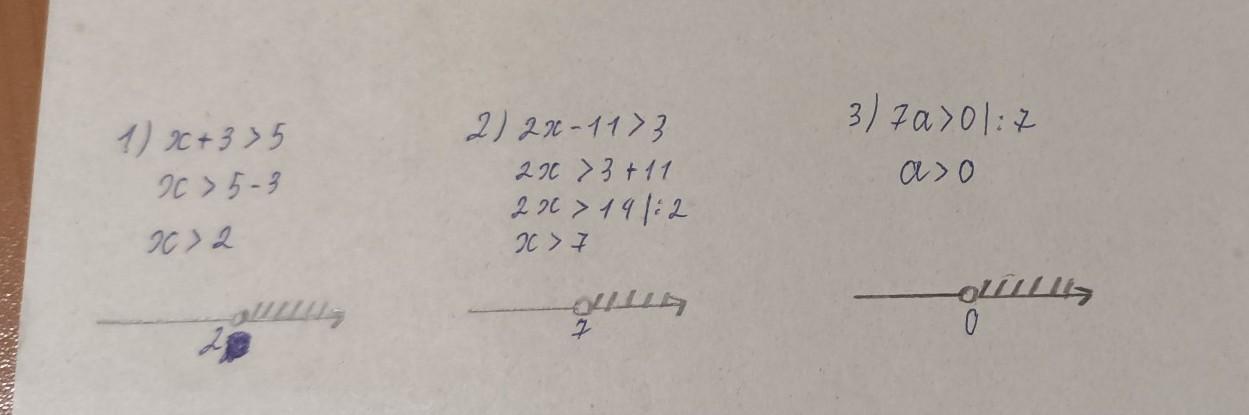 1) x+3>5
x>5-3
x>2
2
2) 2x-11>3
2x>3+11
2x>14|:2
x>7
7
3) 7a>0|:7
a>0
0